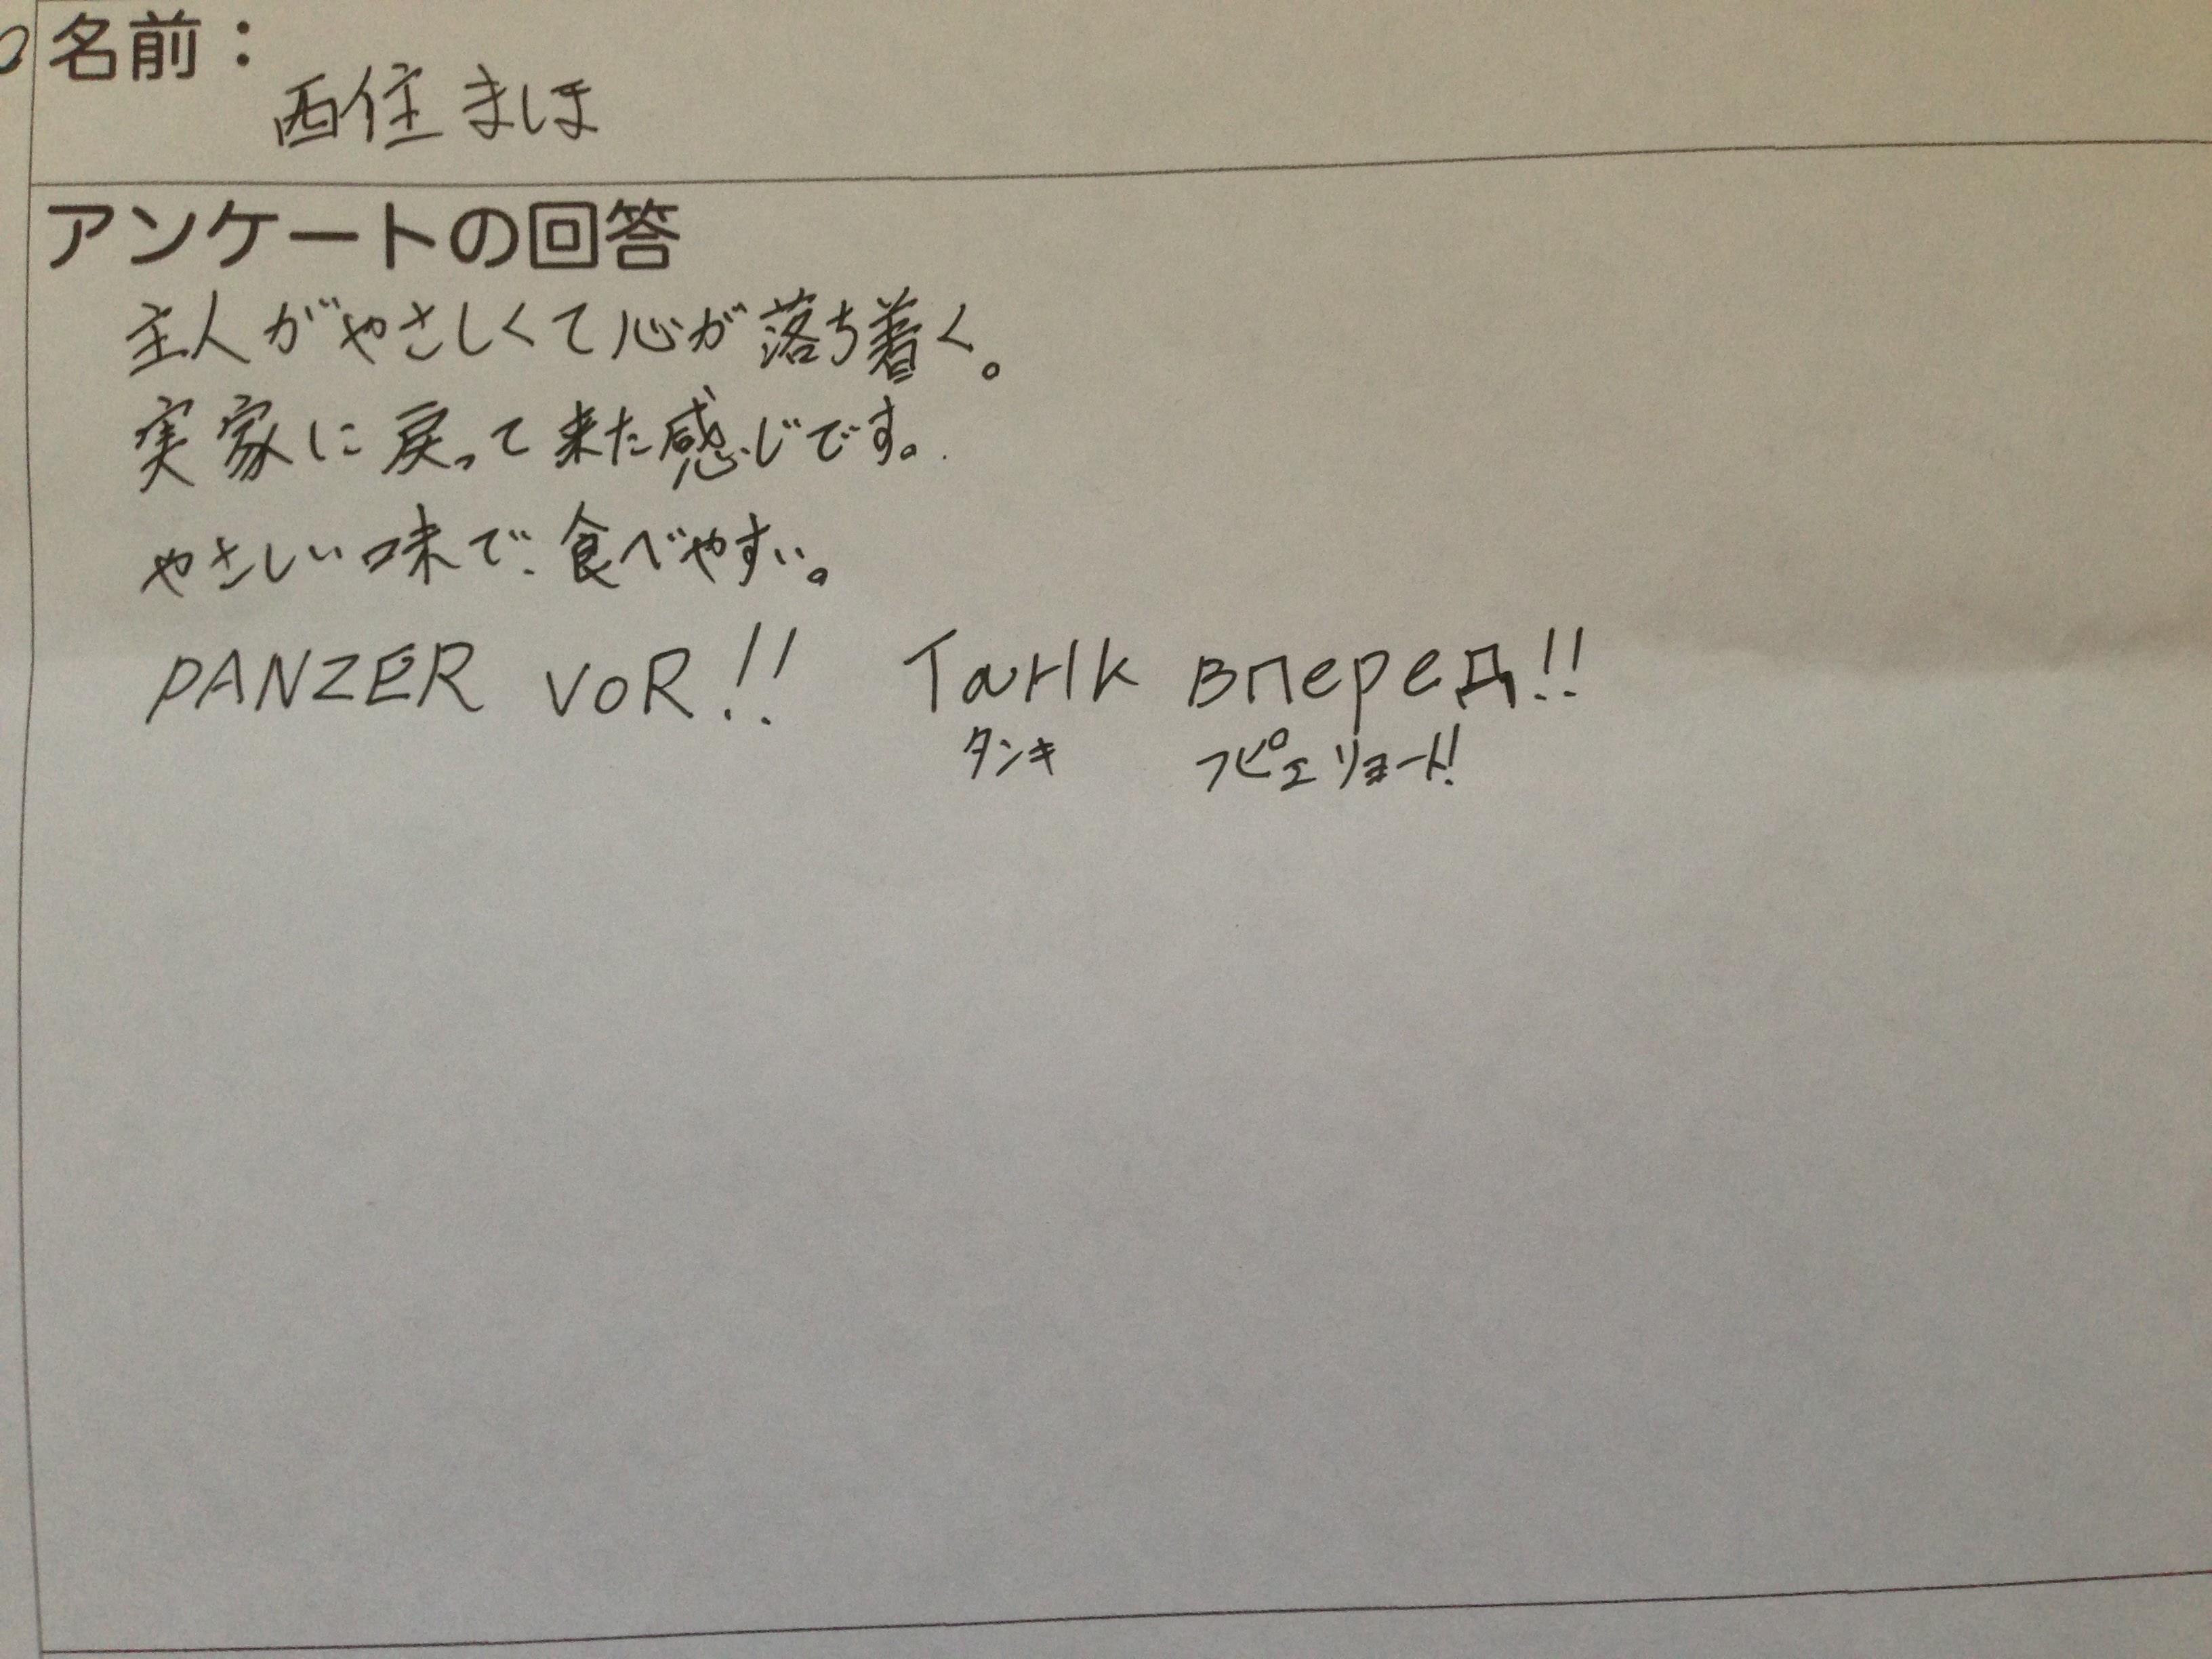 名前：
西住まほ
アンケートの回答
主人がやさしくて心が落ち着く。
実家に戻って来た感じです。
やさしい味で、食べやすい。
PANZER VOR!! Танк вперед!!
タンキ フピェリョート!